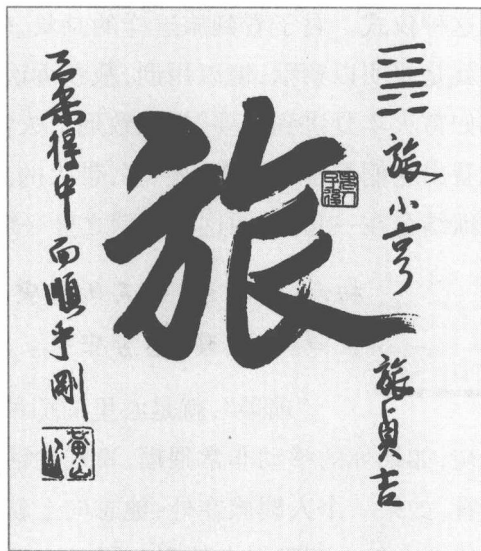 旅 小亨 旅貞吉
旅
柔得中 而順乎剛
黄山